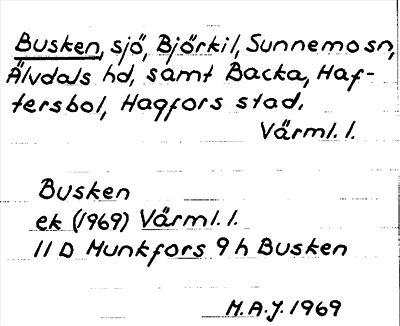 Busken, sjö, Björkil, Sunnemo sn,
Älvdals hd, samt Backa, Haf-
tersbol, Hagfors stad.
Värml. l.
Busken
ek (1969) Värml. l.
11 D Munkfors 9 h Busken
M.A.J. 1969